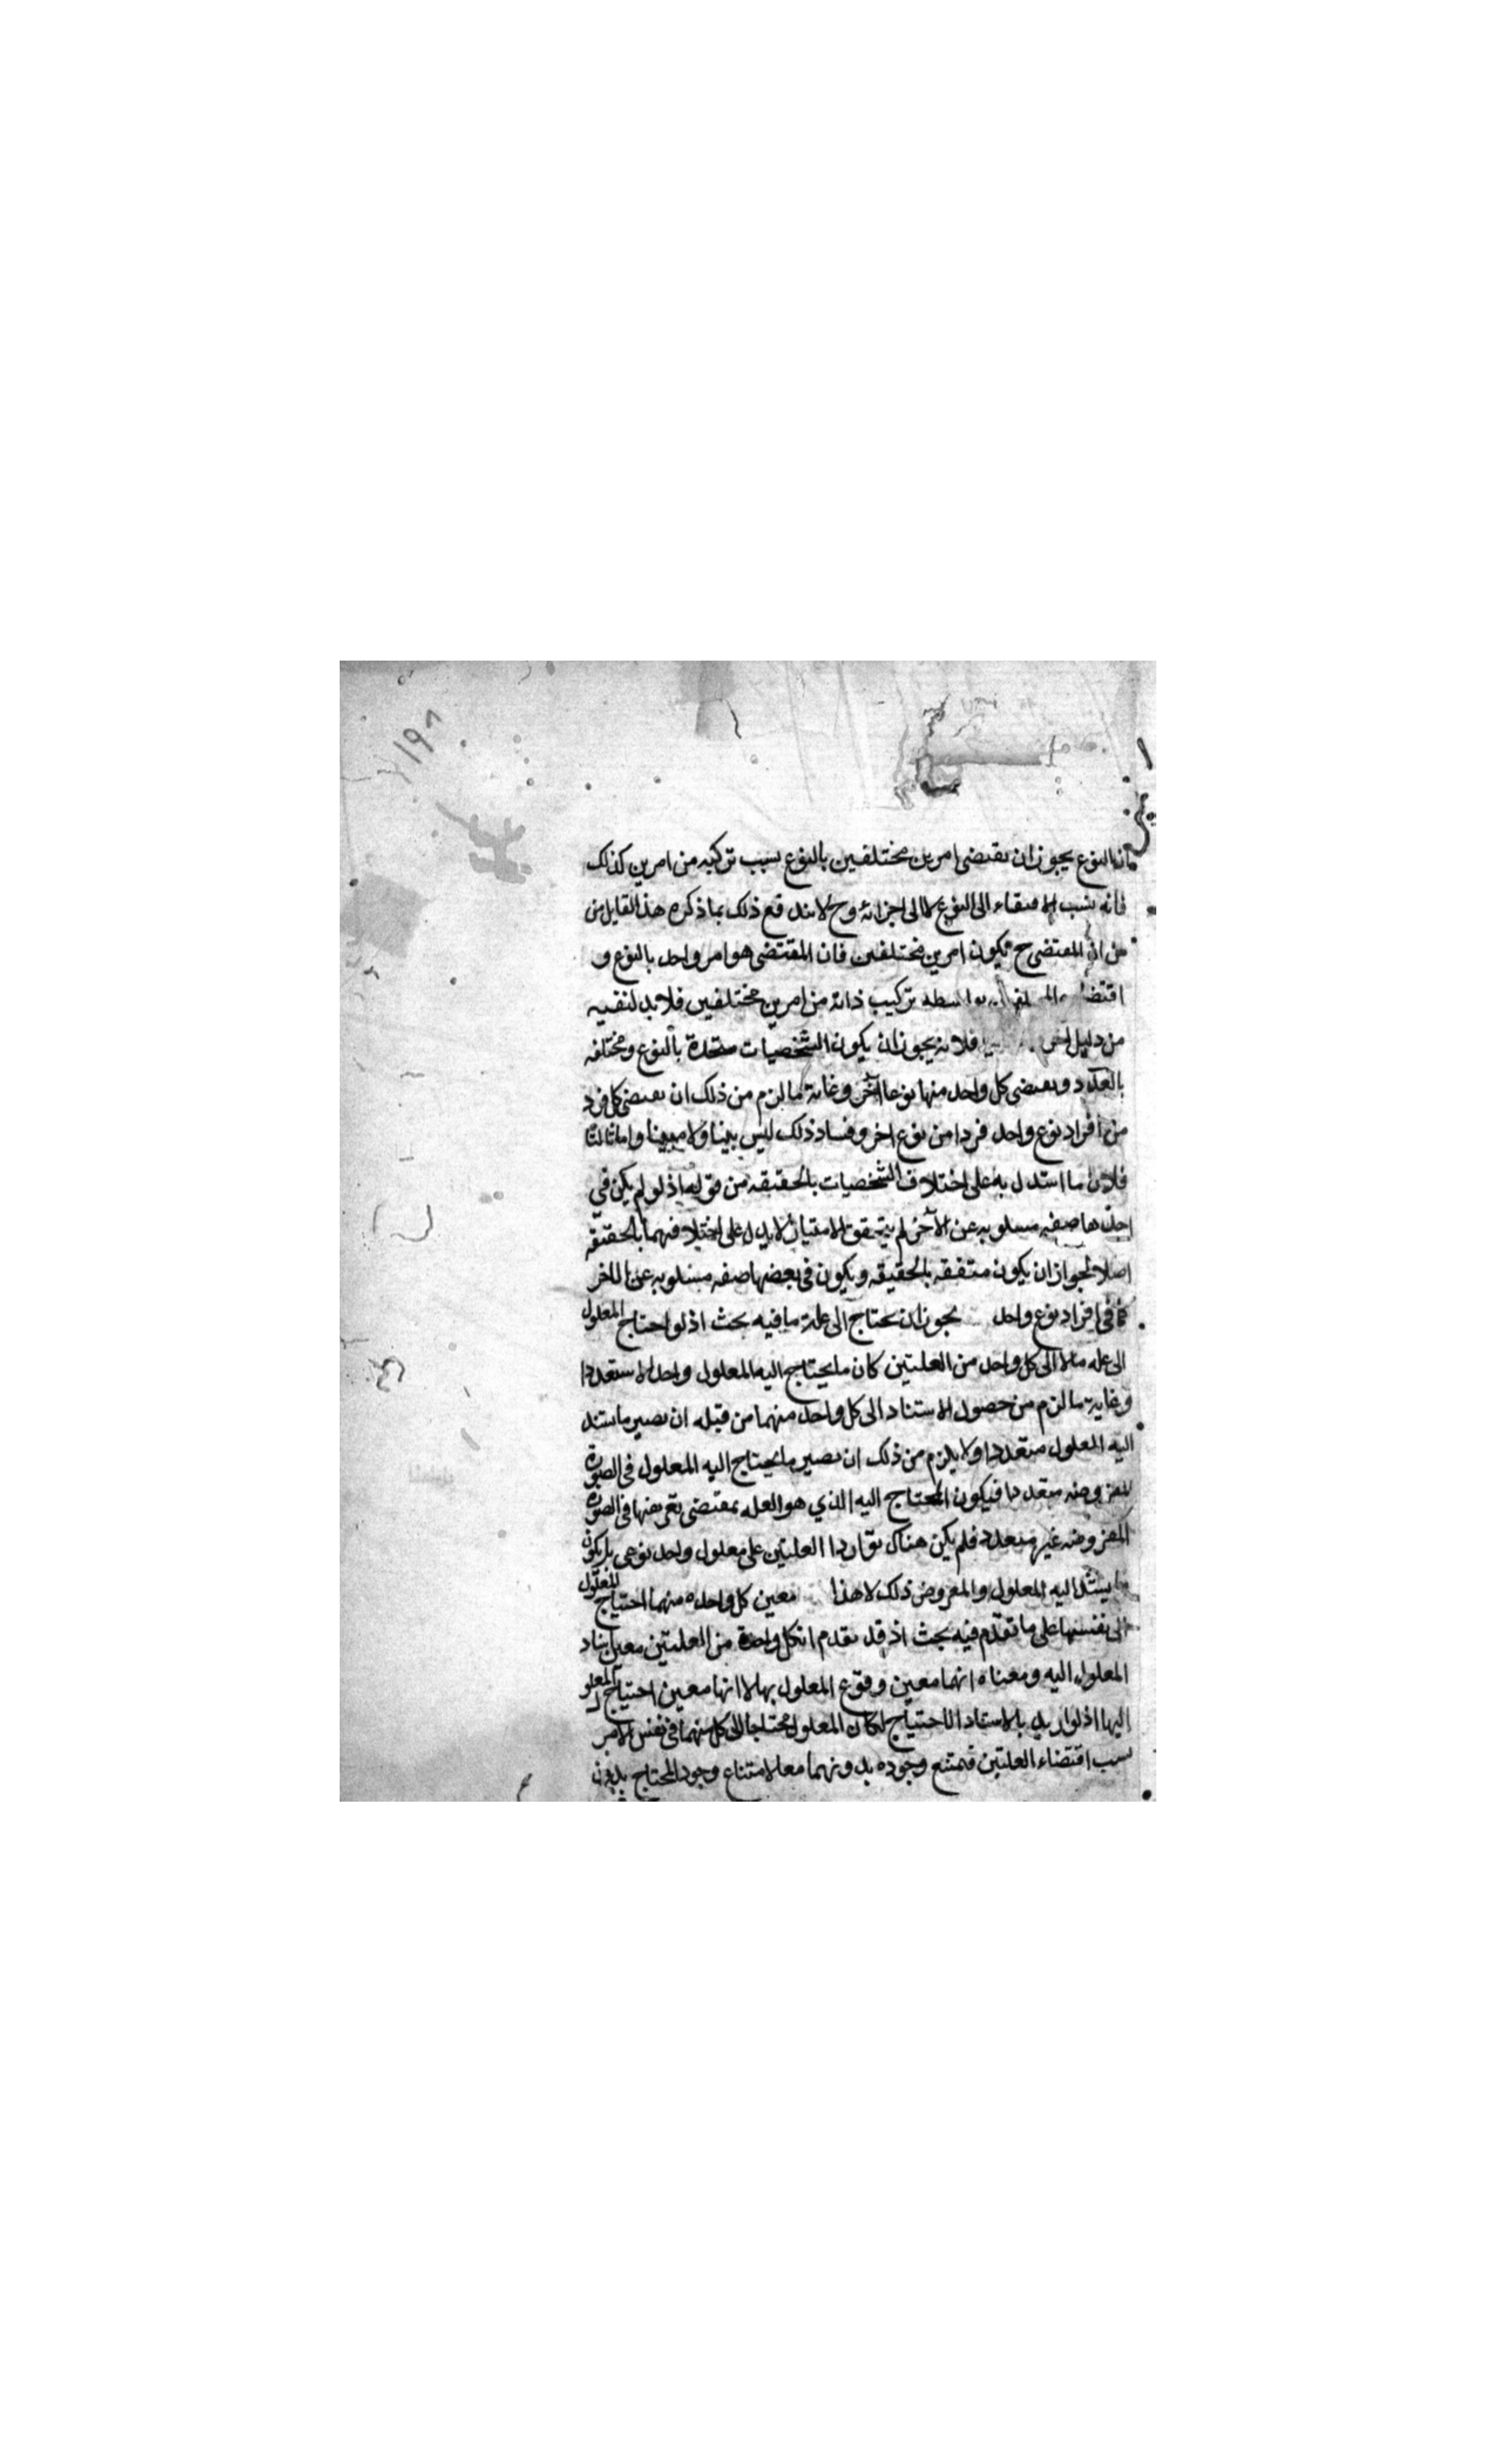 ١٩٨
فان النوع يجوز ان يقتضى امرين مختلفين بالنوع بسبب تركبه من امرين كذلك
فانه ينسب الاقتضاء الى النوع لا الى اجزائه وح لا يندفع ذلك بما ذكره هذا القايل من
من ان المقتضى ح يكون امرين مختلفين فان المقتضى هو امر واحد بالنوع و
اقتضا بواسطة تركيب ذاته من امرين مختلفين فلا بد لنفيه
من دليل اخر فلانه يجوز ان يكون الشخصيات متحدة بالنوع ومختلفه
بالعدد ويقتضى كل واحد منها نوعا اخر وغاية ما لزم من ذلك ان يقتضى كل فرد
من افراد نوع واحد فردا من نوع اخر وفساد ذلك ليس بينا ولا مبينا واما ثالثا
فلان ما استدل به على اختلاف الشخصيات بالحقيقه من قوله اذ لو لم يكن في
احدها صفه مسلوبه عن الآخر لم يتحقق الامتياز لا يدل على اختلافهما بالحقيقه
اصلا لجواز ان يكون متفقه بالحقيقه ويكون في بعضها صفه مسلوبه عن الاخر
كما في افراد نوع واحد يجوز ان يحتاج الى علة ما فيه بحث اذ لو احتاج المعلول
الى عله ما لا الى كل واحد من العلتين كان ما يحتاج اليه المعلول واحدا لا متعددا
وغاية ما لزم من حصول الاستناد الى كل واحد منهما من قبله ان يصير ما يستند
اليه المعلول متعددا ولا يلزم من ذلك ان يصير ما يحتاج اليه المعلول في الصورة
المفروضه متعددا فيكون المحتاج اليه الذي هو العله بمقتضى تعريفها في الصورة
المفروضه غير متعدد فلم يكن هناك توارد العلتين على معلول واحد نوعى بل يكون
ما يستند اليه المعلول والمفروض ذلك لا هذا معين كل واحده منهما احتياج المعلول
الى نفسها على ما تقدم فيه بحث اذ قد تقدم ان كل واحدة من العلتين معين اسناد
المعلول اليه ومعناه انهما معين وقوع المعلول بها لا انها معين احتياج المعلول
اليها اذ لو اريد بالاستناد الاحتياج لكان المعلول محتاجا الى كل منهما في نفس الامر
بسبب اقتضاء العلتين فيمتنع وجوده بدونهما معا لامتناع وجود المحتاج بدون